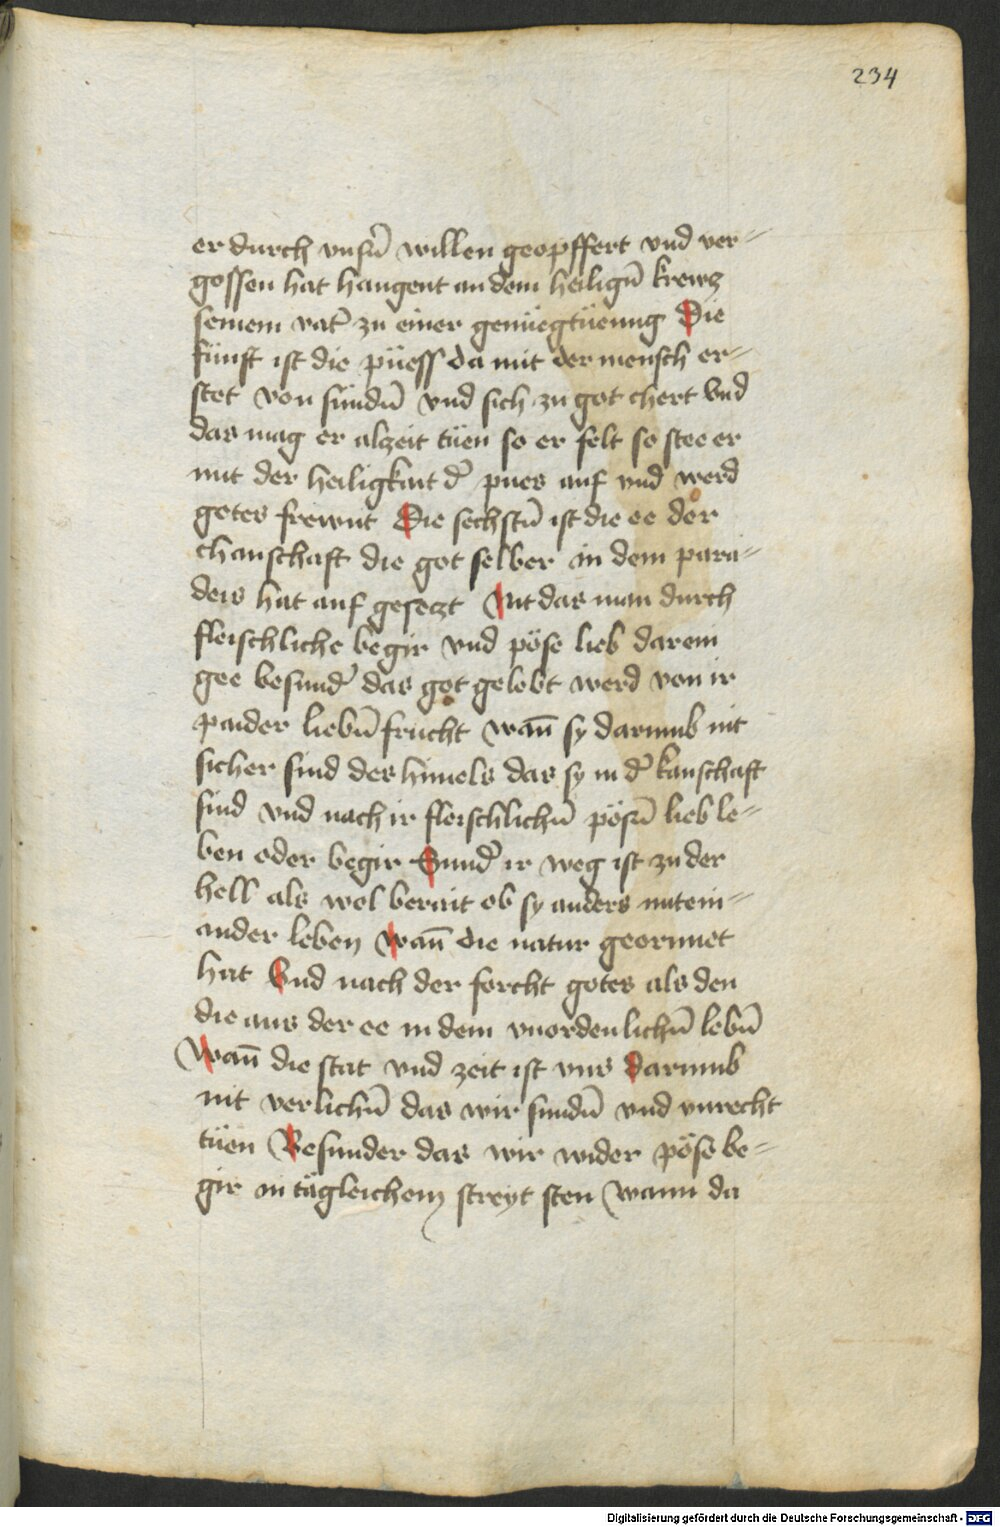 234
er durch vnsn̄ willen geopffert vnd ver-
gossen hat hangent an dem heilign̄ krewcz
seinem vat̄ zu einer genüegtüenng Die
fünft ist die püess da mit der mensch er-
stet von sündn̄ vnd sich zu got chert Vnd
das mag er alzeit tüen so er felt so stee er
mit der heiligkait d̄ pues auf vnd werd
gotes frewnt Die sechstn̄ ist die ee der
chanschaft die got selber in dem para-
deis hat auf gesetzt Nit das man durch
fleischliche begir vnd pöse lieb darein
gee besund̄ das got gelobt werd von ir
paider liebn̄ frucht wan̄ sy darumb nit
sicher sind des himels das sy in d̄ kanschaft
sind vnd nach ir fleischlichn̄ pösn̄ lieb le-
ben oder begir Sund̄ ir weg ist zu der
hell als wol berait ob sy anders mitein-
ander leben wan̄ die natur geornnet
hat Vnd nach der forcht gotes als den
die aus der ee in dem vnordenlichn̄ lebn̄
Wan̄ die stat vnd zeit ist vns darumb
nit verlichn̄ das wir sundn̄ vnd vnrecht
tüen Besunder das wir wider pöse be-
gir in tägleichem streyt sten Wann da
Digitalisierung gefördert durch die Deutsche Forschungsgemeinschaft - DFG